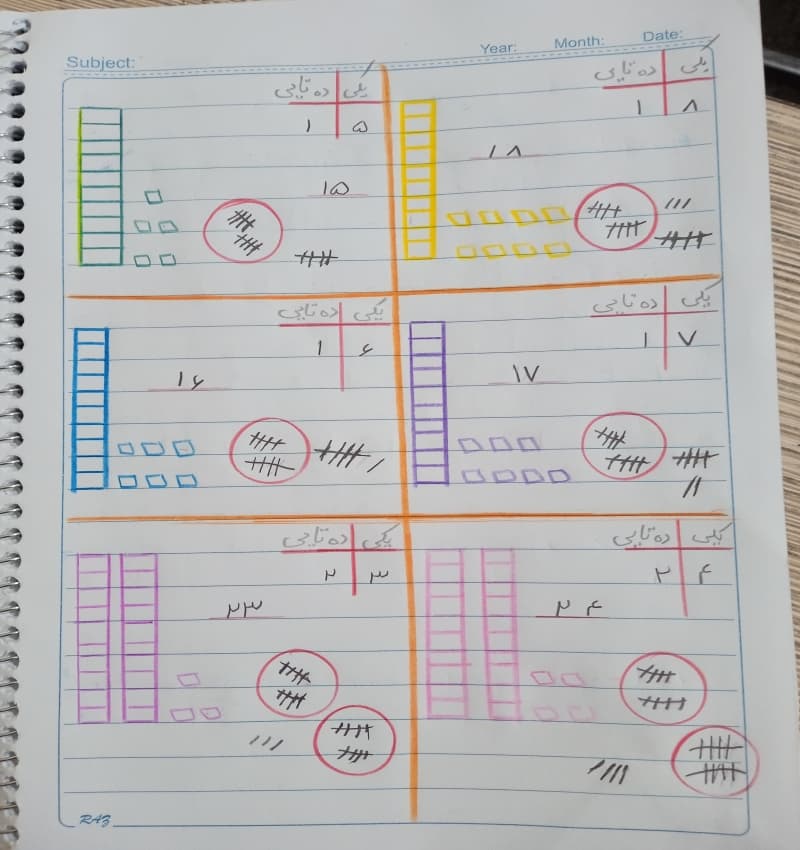 Subject: Year: Month: Date:
یکی ده تایی
۵ ۱
۱۵
یکی ده تایی
۸ ۱
۱۸
یکی ده تایی
۶ ۱
۱۶
یکی ده تایی
۷ ۱
۱۷
یکی ده تایی
۳ ۲
۲۳
یکی ده تایی
۴ ۲
۲۴
RAZ